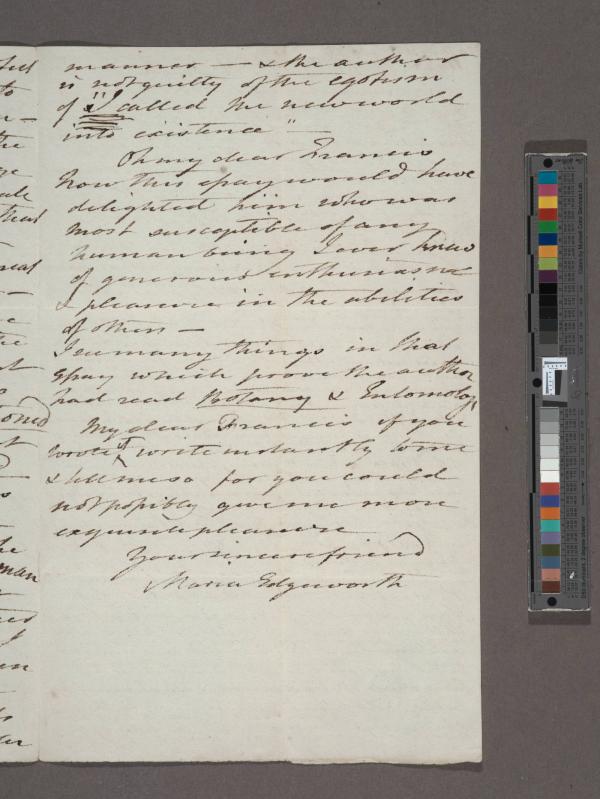 manner — & the author
is not guilty of the egotism
of "I called the new world
into existence" —
Oh my dear Francis
how this essay would have
delighted him who was
most susceptible of any
human being I ever knew
of generous enthusiasm
& pleasure in the abilities
of others —
I see many things in that
essay which prove the author
had read Botany & Entomology
My dear Francis if you
wrote it write instantly to me
& tell me so for you could
not possibly give me more
exquisite pleasure
Your sincere friend
Maria Edgeworth